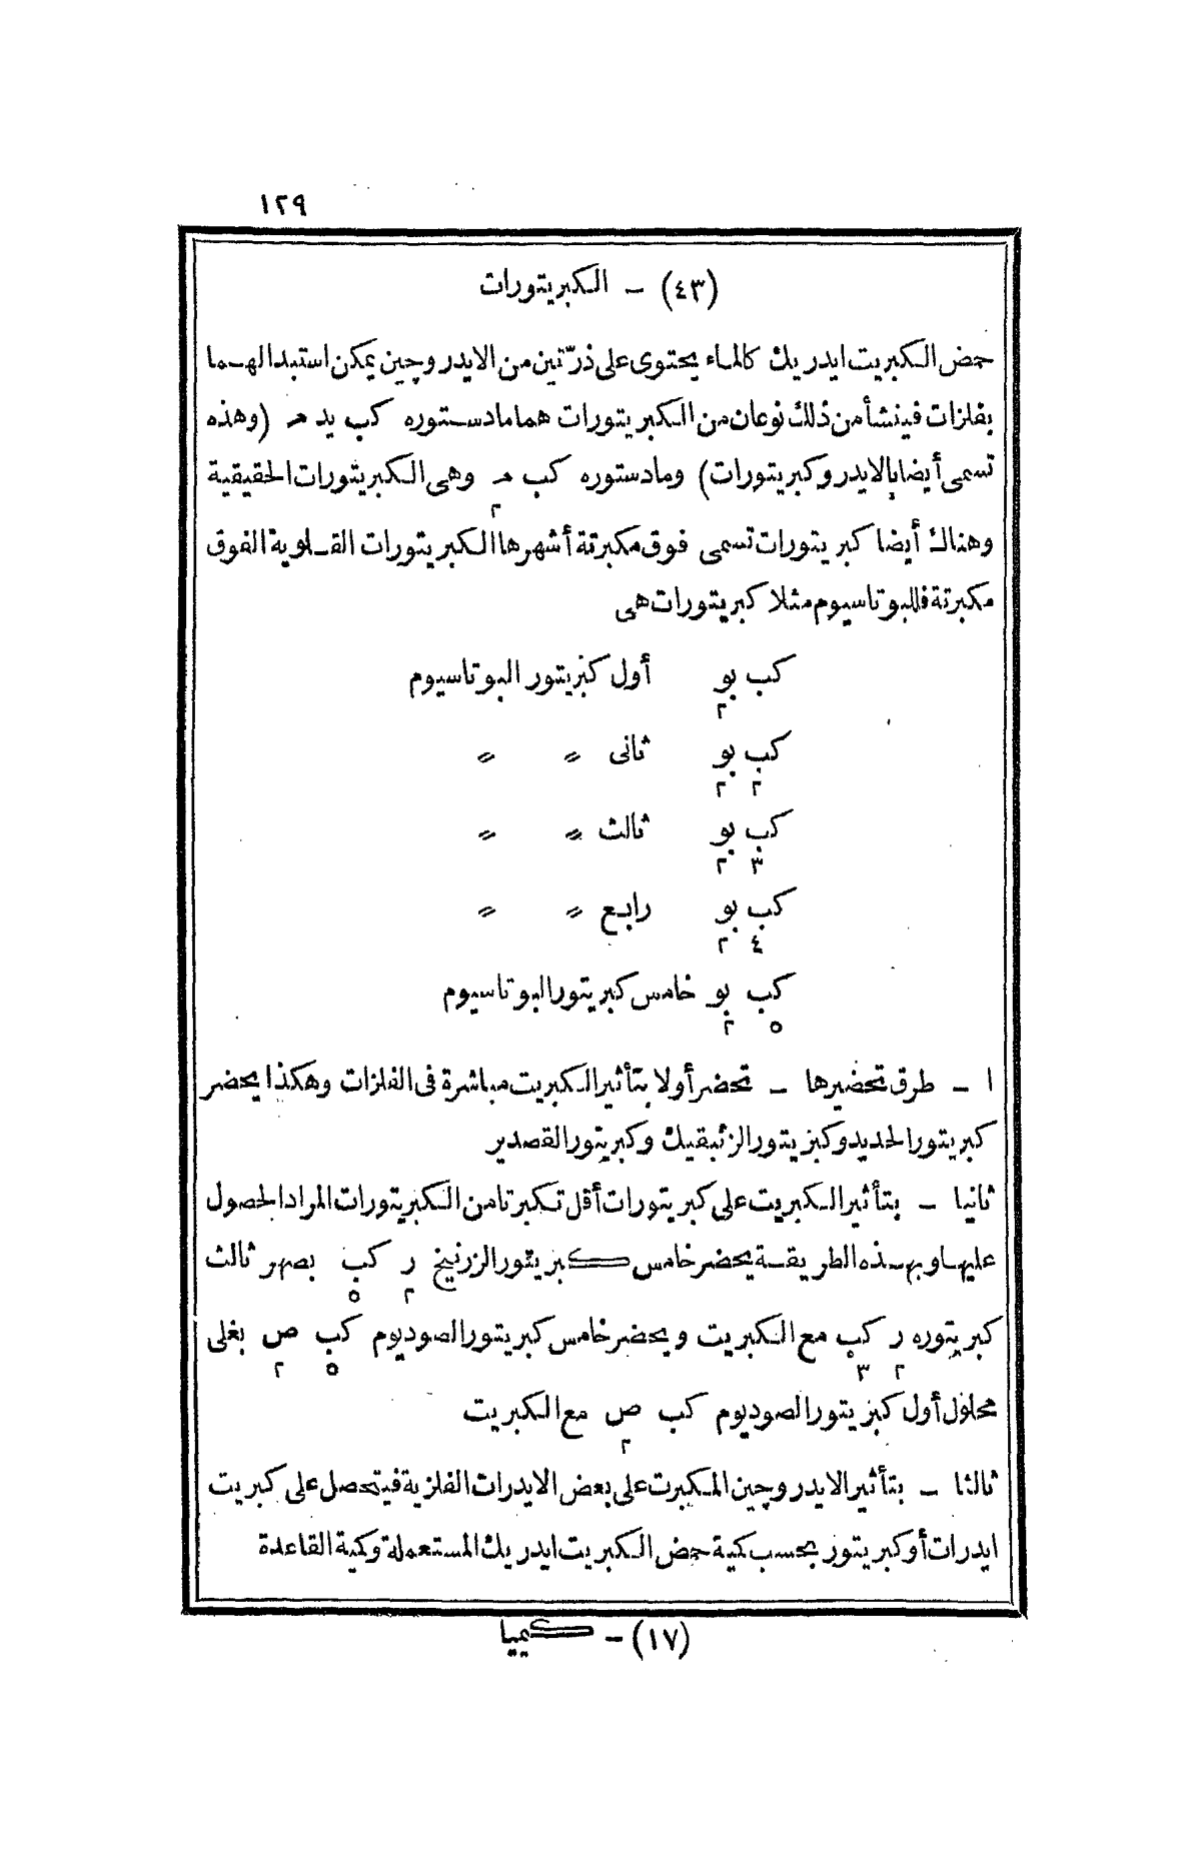 ١٢٩
(٤٣) – الكبريتورات
حمض الكبريت ايدريك كالماء يحتوى على ذرّتين من الايدروچين يمكن استبدالهما
بفلزات فينشأ من ذلك نوعان من الكبريتورات هما مادستوره كب يد م (وهذه
تسمى أيضا بالايدروكبريتورات) ومادستوره كب م وهى الكبريتورات الحقيقية
٢
وهناك أيضا كبريتورات تسمى فوق مكبرتة أشهرها الكبريتورات القلوية الفوق
مكبرتة فللبوتاسيوم مثلا كبريتورات هى
كب بو أول كبريتور البوتاسيوم
٢
كب بو ثانى 〃 〃
٢ ٢
كب بو ثالث 〃 〃
٣ ٢
كب بو رابع 〃 〃
٤ ٢
كب بو خامس كبريتور البوتاسيوم
٥ ٢
١ – طرق تحضيرها – تحضر أولا بتأثير الكبريت مباشرة فى الفلزات وهكذا يحضر
كبريتور الحديد وكبريتور الزئبقيك وكبريتور القصدير
ثانيا – بتأثير الكبريت على كبريتورات أقل تكبرتا من الكبريتورات المراد الحصول
عليها وبهذه الطريقة يحضر خامس كبريتور الزرنيخ ر كب بصهر ثالث
٢ ٥
كبريتوره ر كب مع الكبريت ويحضر خامس كبريتور الصوديوم كب ص بغلى
٢ ٣ ٥ ٢
محلول أول كبريتور الصوديوم كب ص مع الكبريت
٢
ثالثا – بتأثير الايدروچين المكبرت على بعض الايدرات الفلزية فيتحصل على كبريت
ايدرات أو كبريتور بحسب كمية حمض الكبريت ايدريك المستعملة وكمية القاعدة
(١٧) – كيميا